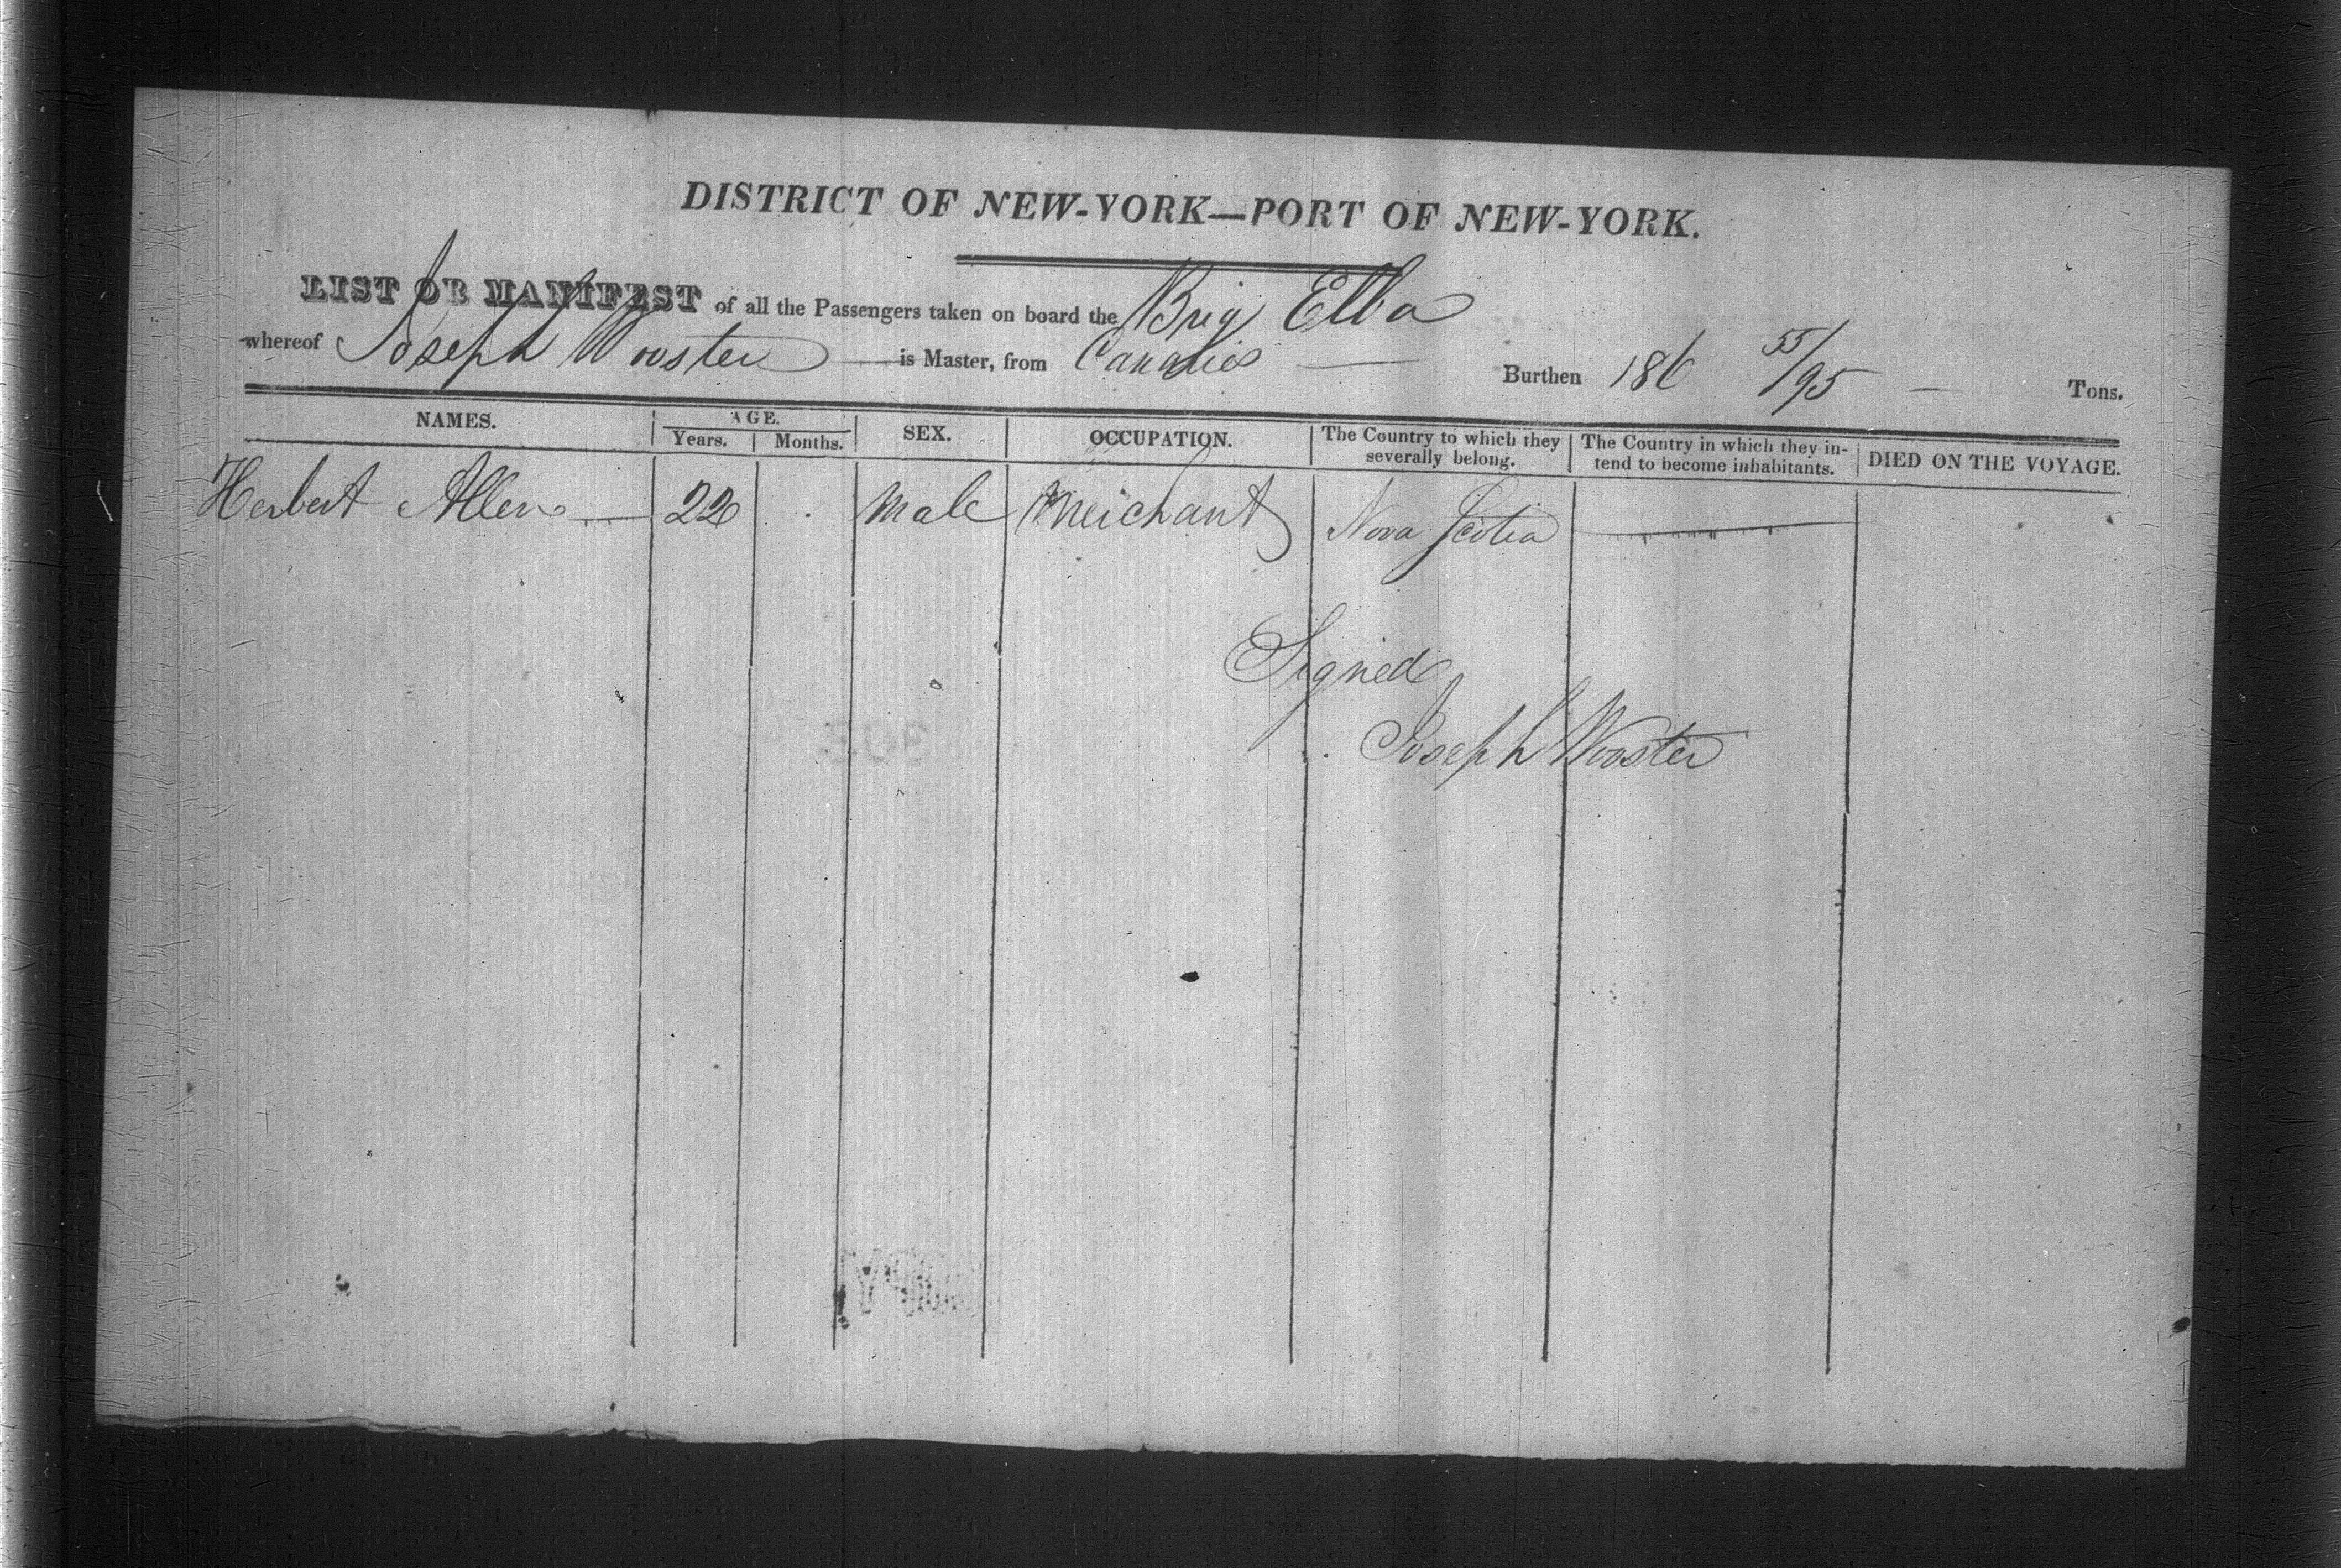 DISTRICT OF NEW-YORK—PORT OF NEW-YORK.
LIST OR MANIFEST of all the Passengers taken on board the Brig Elba
whereof Joseph Wooster is Master, from Canaries Burthen 186 55/95 Tons.
NAMES. AGE. Years. Months. SEX. OCCUPATION. The Country to which they severally belong. The Country in which they intend to become inhabitants. DIED ON THE VOYAGE.
Herbert Allen 22 Male Merchant Nova Scotia
Signed
Joseph Wooster